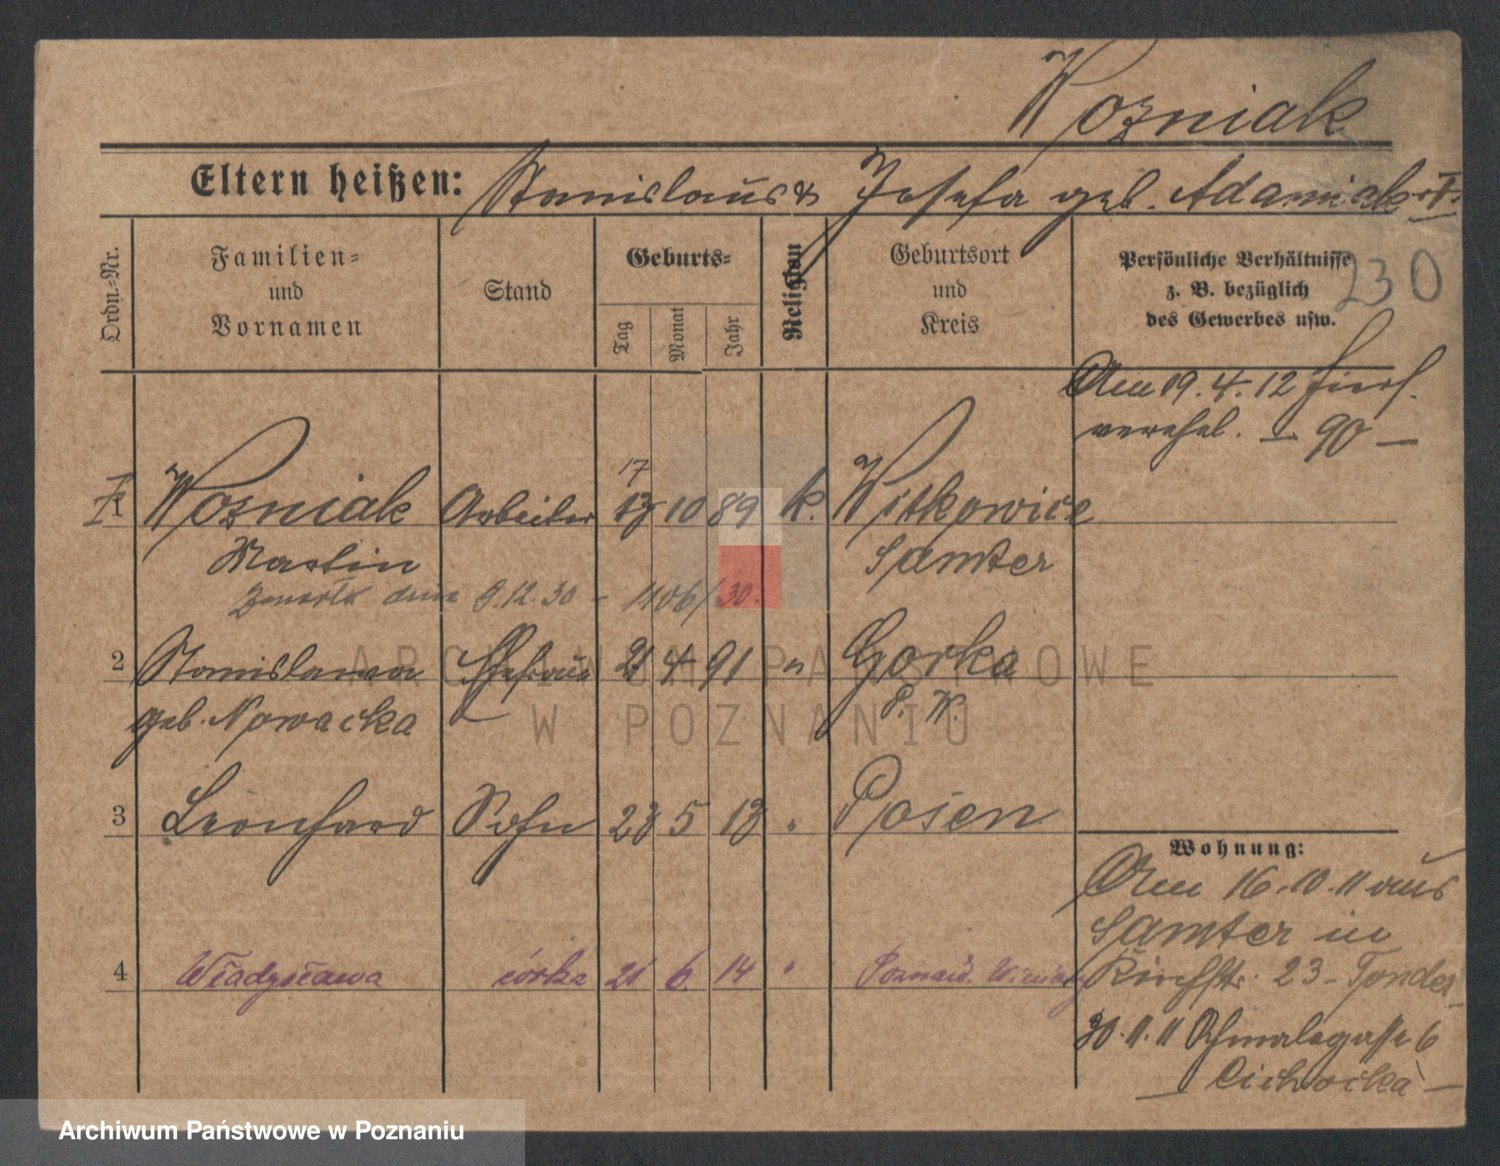 Wozniak
Eltern heißen: Stanislaus & Josefa geb. Adamiak
230
Ordn.-Nr.
Familien- und Vornamen
Stand
Geburts-
Tag
Monat
Jahr
Religion
Geburtsort und Kreis
Persönliche Verhältnisse z. B. bezüglich des Gewerbes usw.
Am 19.4.12 hier
verehel. — 90 —
17
1 Wozniak Arbeiter 13 10 89 k. Witkowice
Martin Samter
zmarł dnia 9.12.30 - 1106/30.
2 Stanislawa Ehefrau 21 4 91 " Gorka
geb. Nowacka P. W.
3 Leonhard Sohn 23 5 13 " Posen
Wohnung:
Am 16.10.11 aus
Samter in
4 Władysława córka 21 6. 14 " Poznań
Kirchstr. 23 - Tonder
30.11.11 Schmalegasse 6
— Cichocka —
ARCHIWUM PAŃSTWOWE
W POZNANIU
Archiwum Państwowe w Poznaniu